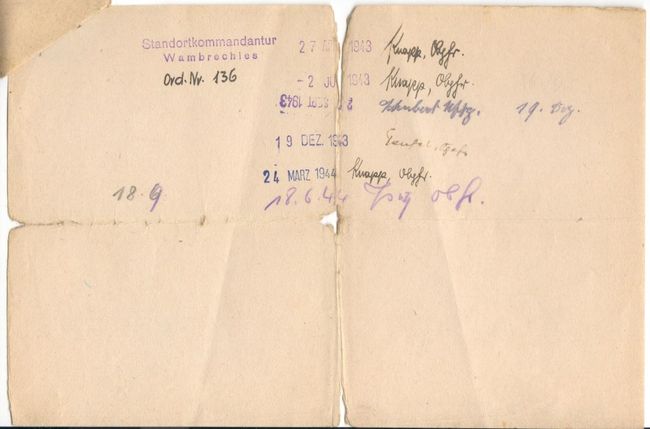 Standortkommandantur
Wambrechies
Ord. Nr. 136
27 1943 Knapp, Obgfr.
- 2 JU 1943 Knapp, Obgfr.
SEPT 1943 Schubert 19. Dez.
19 DEZ. 1943
24 MÄRZ 1944 Knapp, Obgfr.
18.9 18.6.44